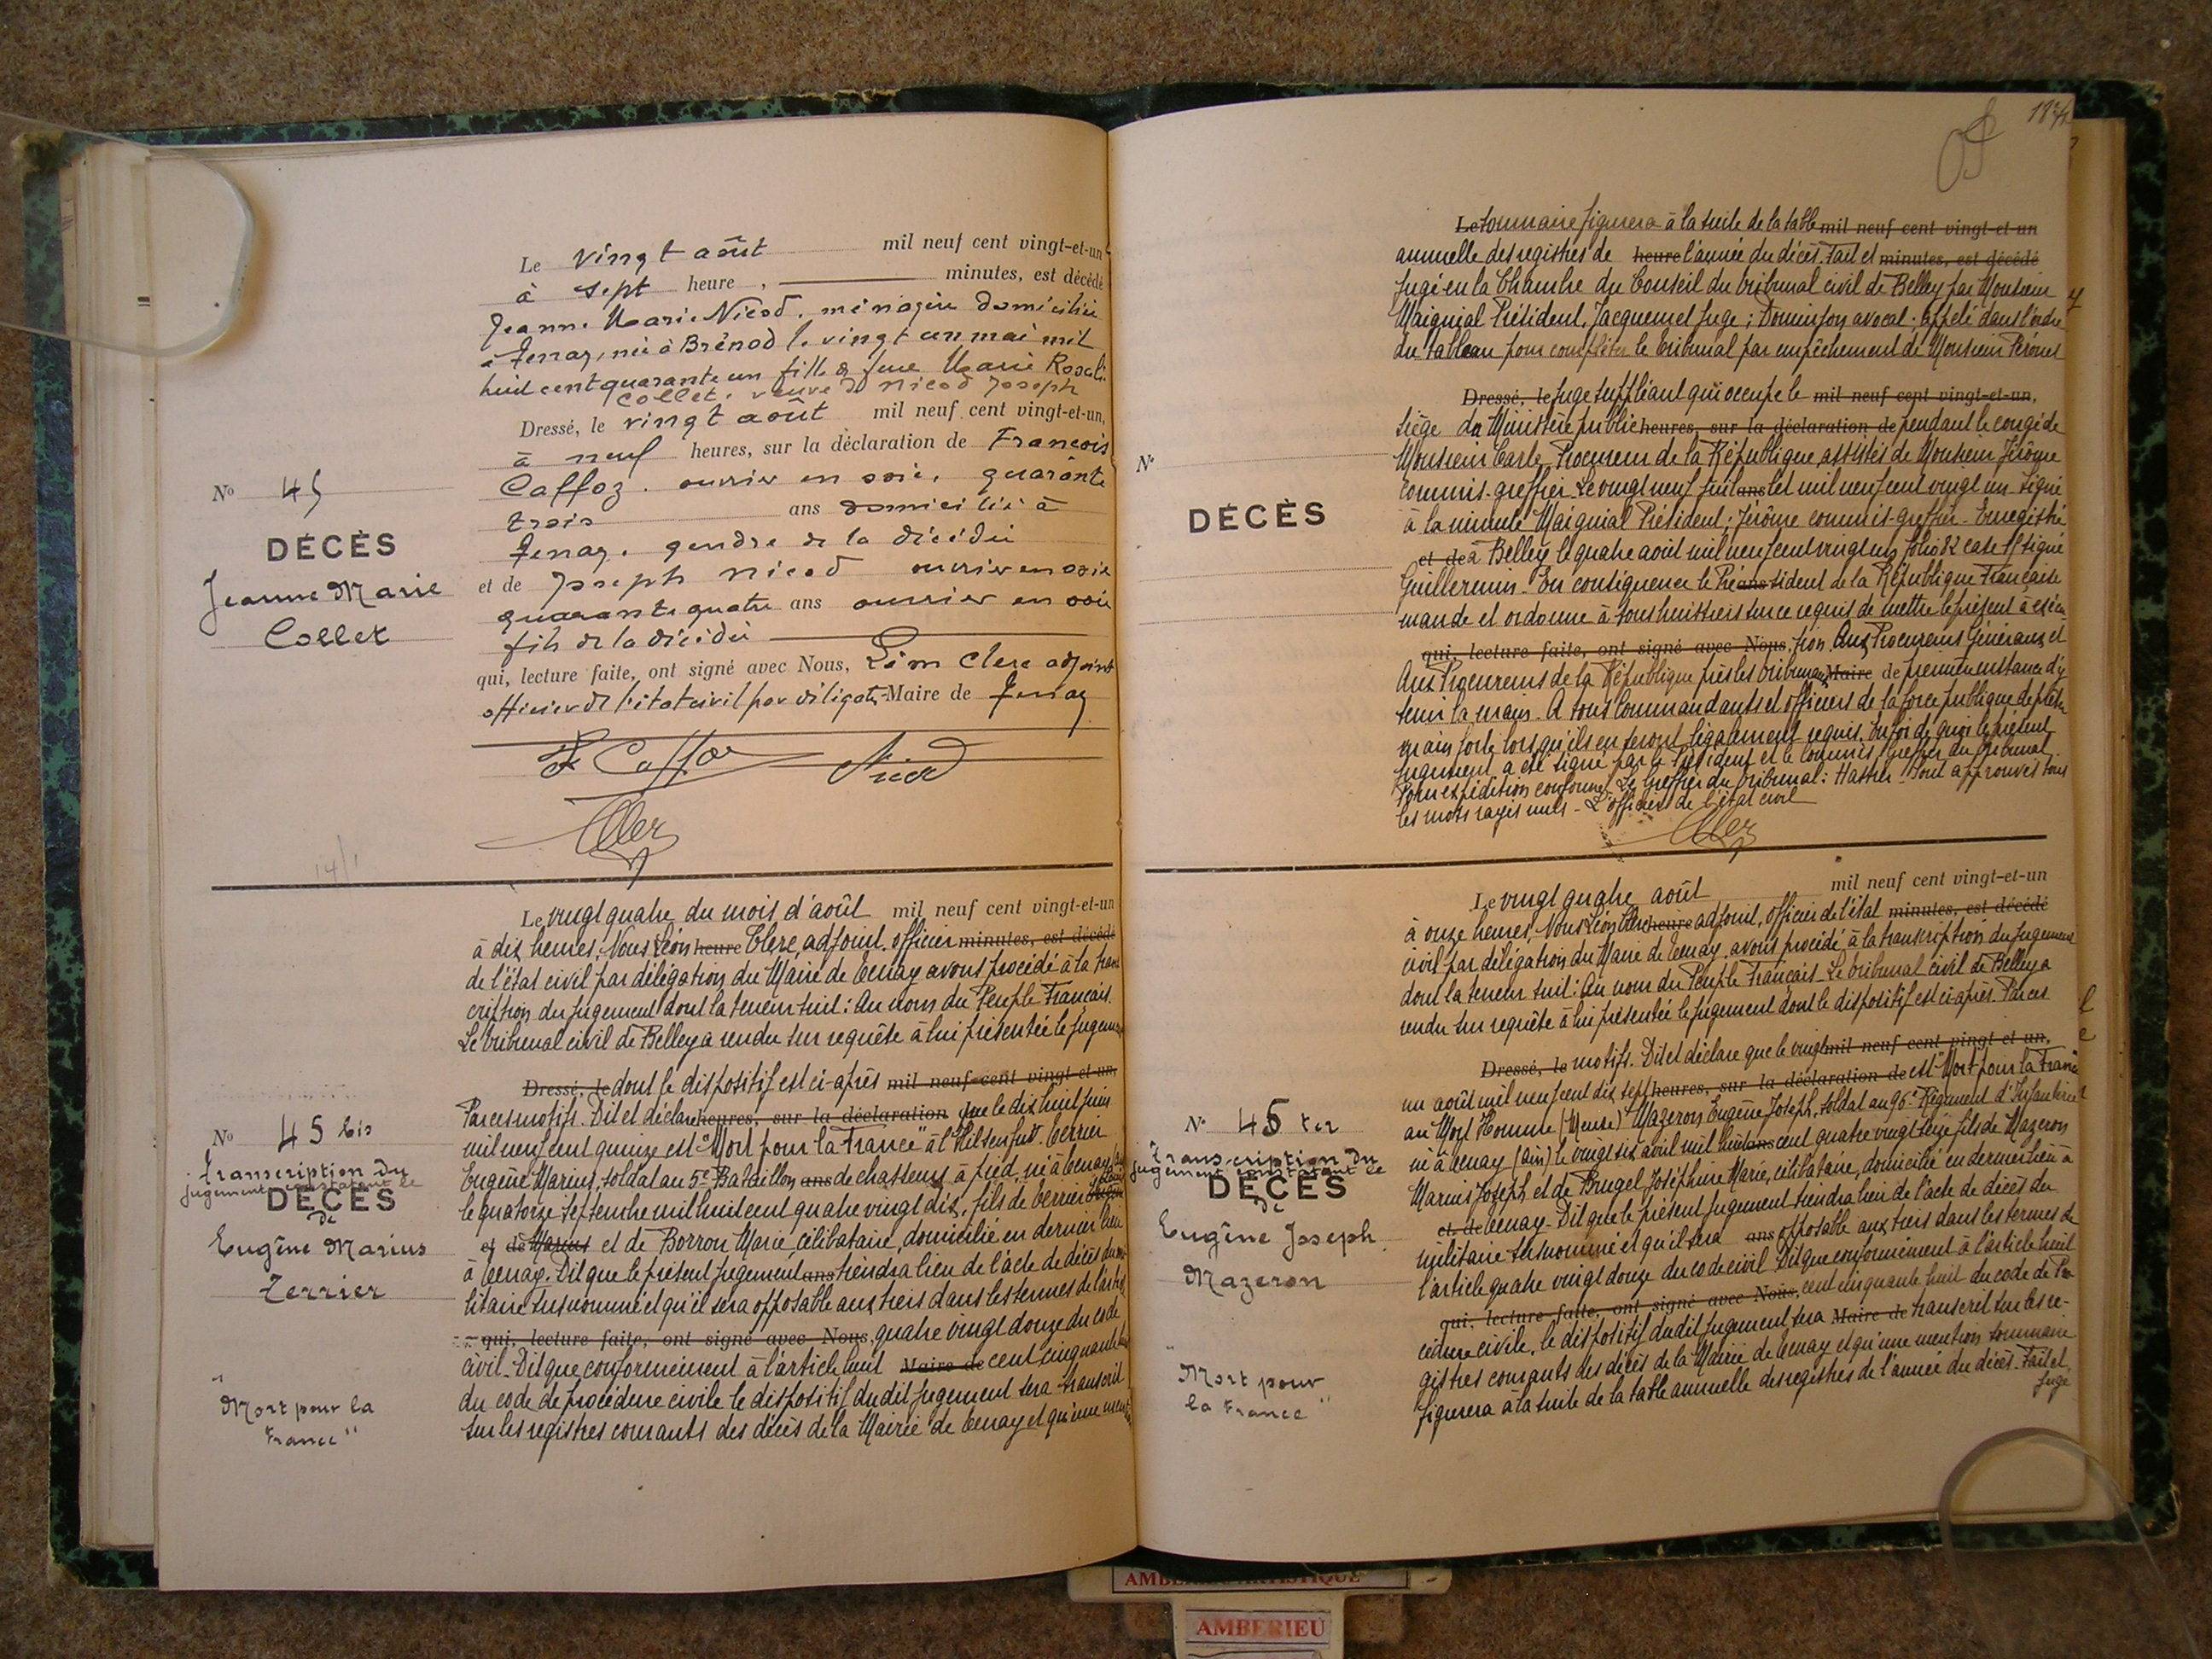 Le vingt août mil neuf cent vingt-et-un
à sept heure, minutes, est décédé
Jeanne Marie Nicod, ménagère domiciliée
à Tenay, née à Brénod le vingt un mai mil
huit cent quarante un fille de feue Marie Rosali
Collet, veuve de Nicod Joseph
Dressé, le vingt août mil neuf cent vingt-et-un,
à neuf heures, sur la déclaration de François
Caffoz, ouvrier en soie, quarante
trois ans domicilié à
Tenay, gendre de la décédée
et de Joseph Nicod ouvrier en soie
quarante quatre ans ouvrier en soie
fils de la décédée
qui, lecture faite, ont signé avec Nous, Léon Clerc adjoint
officier de l'état civil par délégation Maire de Tenay
No 45
DÉCÈS
Jeanne Marie
Collet
F Caffoz Nicod
Clerc
14/1
Le vingt quatre du mois d'août mil neuf cent vingt-et-un
à dix heures, Nous Léon heure Clerc, adjoint, officier minutes, est décédé
de l'état civil par délégation du Maire de Tenay avons procédé à la trans
cription du jugement dont la teneur suit: Au nom du Peuple Français.
Le Tribunal civil de Belley a rendu sur requête à lui présentée le jugement
Dressé, le dont le dispositif est ci-après mil neuf cent vingt-et-un,
Par ces motifs. Dit et déclare heures, sur la déclaration que le dix huit juin
mil neuf cent quinze est "Mort pour la France" à l'Hilsenfirst. Terrier
Eugène Marius, soldat au 5e Bataillon ans de chasseurs à pied, né à Tenay
le quatorze septembre mil huit cent quatre vingt dix, fils de Terrier
et de Marius et de Borron Marie, célibataire, domicilié en dernier lieu
à Tenay. Dit que le présent jugement ans tiendra lieu de l'acte de décès du mi
litaire susnommé et qu'il sera opposable aux tiers dans les termes de l'article
qui, lecture faite, ont signé avec Nous, quatre vingt douze du code
civil. Dit que conformément à l'article huit Maire de cent cinquante huit
du code de procédure civile le dispositif du dit jugement sera transcrit
sur les registres courants des décès de la Mairie de Tenay et qu'une mention
No 45 bis
Transcription du
jugement constatant le
DÉCÈS
de
Eugène Marius
Terrier
"Mort pour la
France"
182
Le sommaire figurera à la suite de la table mil neuf cent vingt-et-un
annuelle des registres de heure l'année du décès. Fait et minutes, est décédé
jugé en la Chambre du Conseil du tribunal civil de Belley par Monsieur
Maiguial Président, Jacquemet Juge; Dominjon avocat, appelé dans l'ordre
du tableau pour compléter le tribunal par empêchement de Monsieur Péronet
Dressé, le juge suppléant qui occupe le mil neuf cent vingt-et-un,
siège du Ministère public heures, sur la déclaration de pendant le congé de
Monsieur Carle, Procureur de la République, assistés de Monsieur Jérôme
commis-greffier. Le vingt neuf juil ans let mil neuf cent vingt un. Signé
à la minute Maiguial Président; Jérôme commis-greffier. Enregistré
et de à Belley le quatre août mil neuf cent vingt un folio 82 case signé
Guillermin. En conséquence le Pré ans sident de la République Française
mande et ordonne à tous huissiers sur ce requis de mettre le présent à exécu
qui, lecture faite, ont signé avec Nous, tion. Aux Procureurs Généraux et
Aux Procureurs de la République près les tribunaux Maire de première instance d'y
tenir la main. A tous Commandants et officiers de la force publique de prêter
main forte lorsqu'ils en seront légalement requis. En foi de quoi le présent
jugement a été signé par le Président et le commis greffier du tribunal.
Pour expédition conforme, Le Greffier du Tribunal: Hastier. Sont approuvés tous
les mots rayés nuls. L'officier de l'état civil
Clerc
No
DÉCÈS
Le vingt quatre août mil neuf cent vingt-et-un
à onze heures, Nous Léon Clerc heure adjoint, officier de l'état minutes, est décédé
civil par délégation du Maire de Tenay, avons procédé à la transcription du jugement
dont la teneur suit: Au nom du Peuple Français. Le tribunal civil de Belley a
rendu sur requête à lui présentée le jugement dont le dispositif est ci-après. Par ces
Dressé, le motifs. Dit et déclare que le vingt mil neuf cent vingt et un,
un août mil neuf cent dix sept heures, sur la déclaration de est "Mort pour la France"
au Mort Homme (Meuse) Mazeron Eugène Joseph, soldat au 96e Régiment d'Infanterie
né à Tenay (Ain) le vingt six avril mil huit ans cent quatre vingt seize fils de Mazeron
Marius Joseph et de Brugel Joséphine Marie, célibataire, domicilié en dernier lieu à
et de Tenay. Dit que le présent jugement tiendra lieu de l'acte de décès du
militaire susnommé et qu'il sera ans opposable aux tiers dans les termes de
l'article quatre vingt douze du code civil. Dit que conformément à l'article huit
qui, lecture faite, ont signé avec Nous, cent cinquante huit du code de Pro
cédure civile, le dispositif du dit jugement sera Maire de transcrit sur les re-
gistres courants des décès de la Mairie de Tenay et qu'une mention sommaire
figurera à la suite de la table annuelle des registres de l'année du décès. Fait et
jugé
No 45 ter
Transcription du
jugement constatant le
DÉCÈS
de
Eugène Joseph
Mazeron
"Mort pour
la France"
AMBERIEU ARTISTIQUE
AMBERIEU